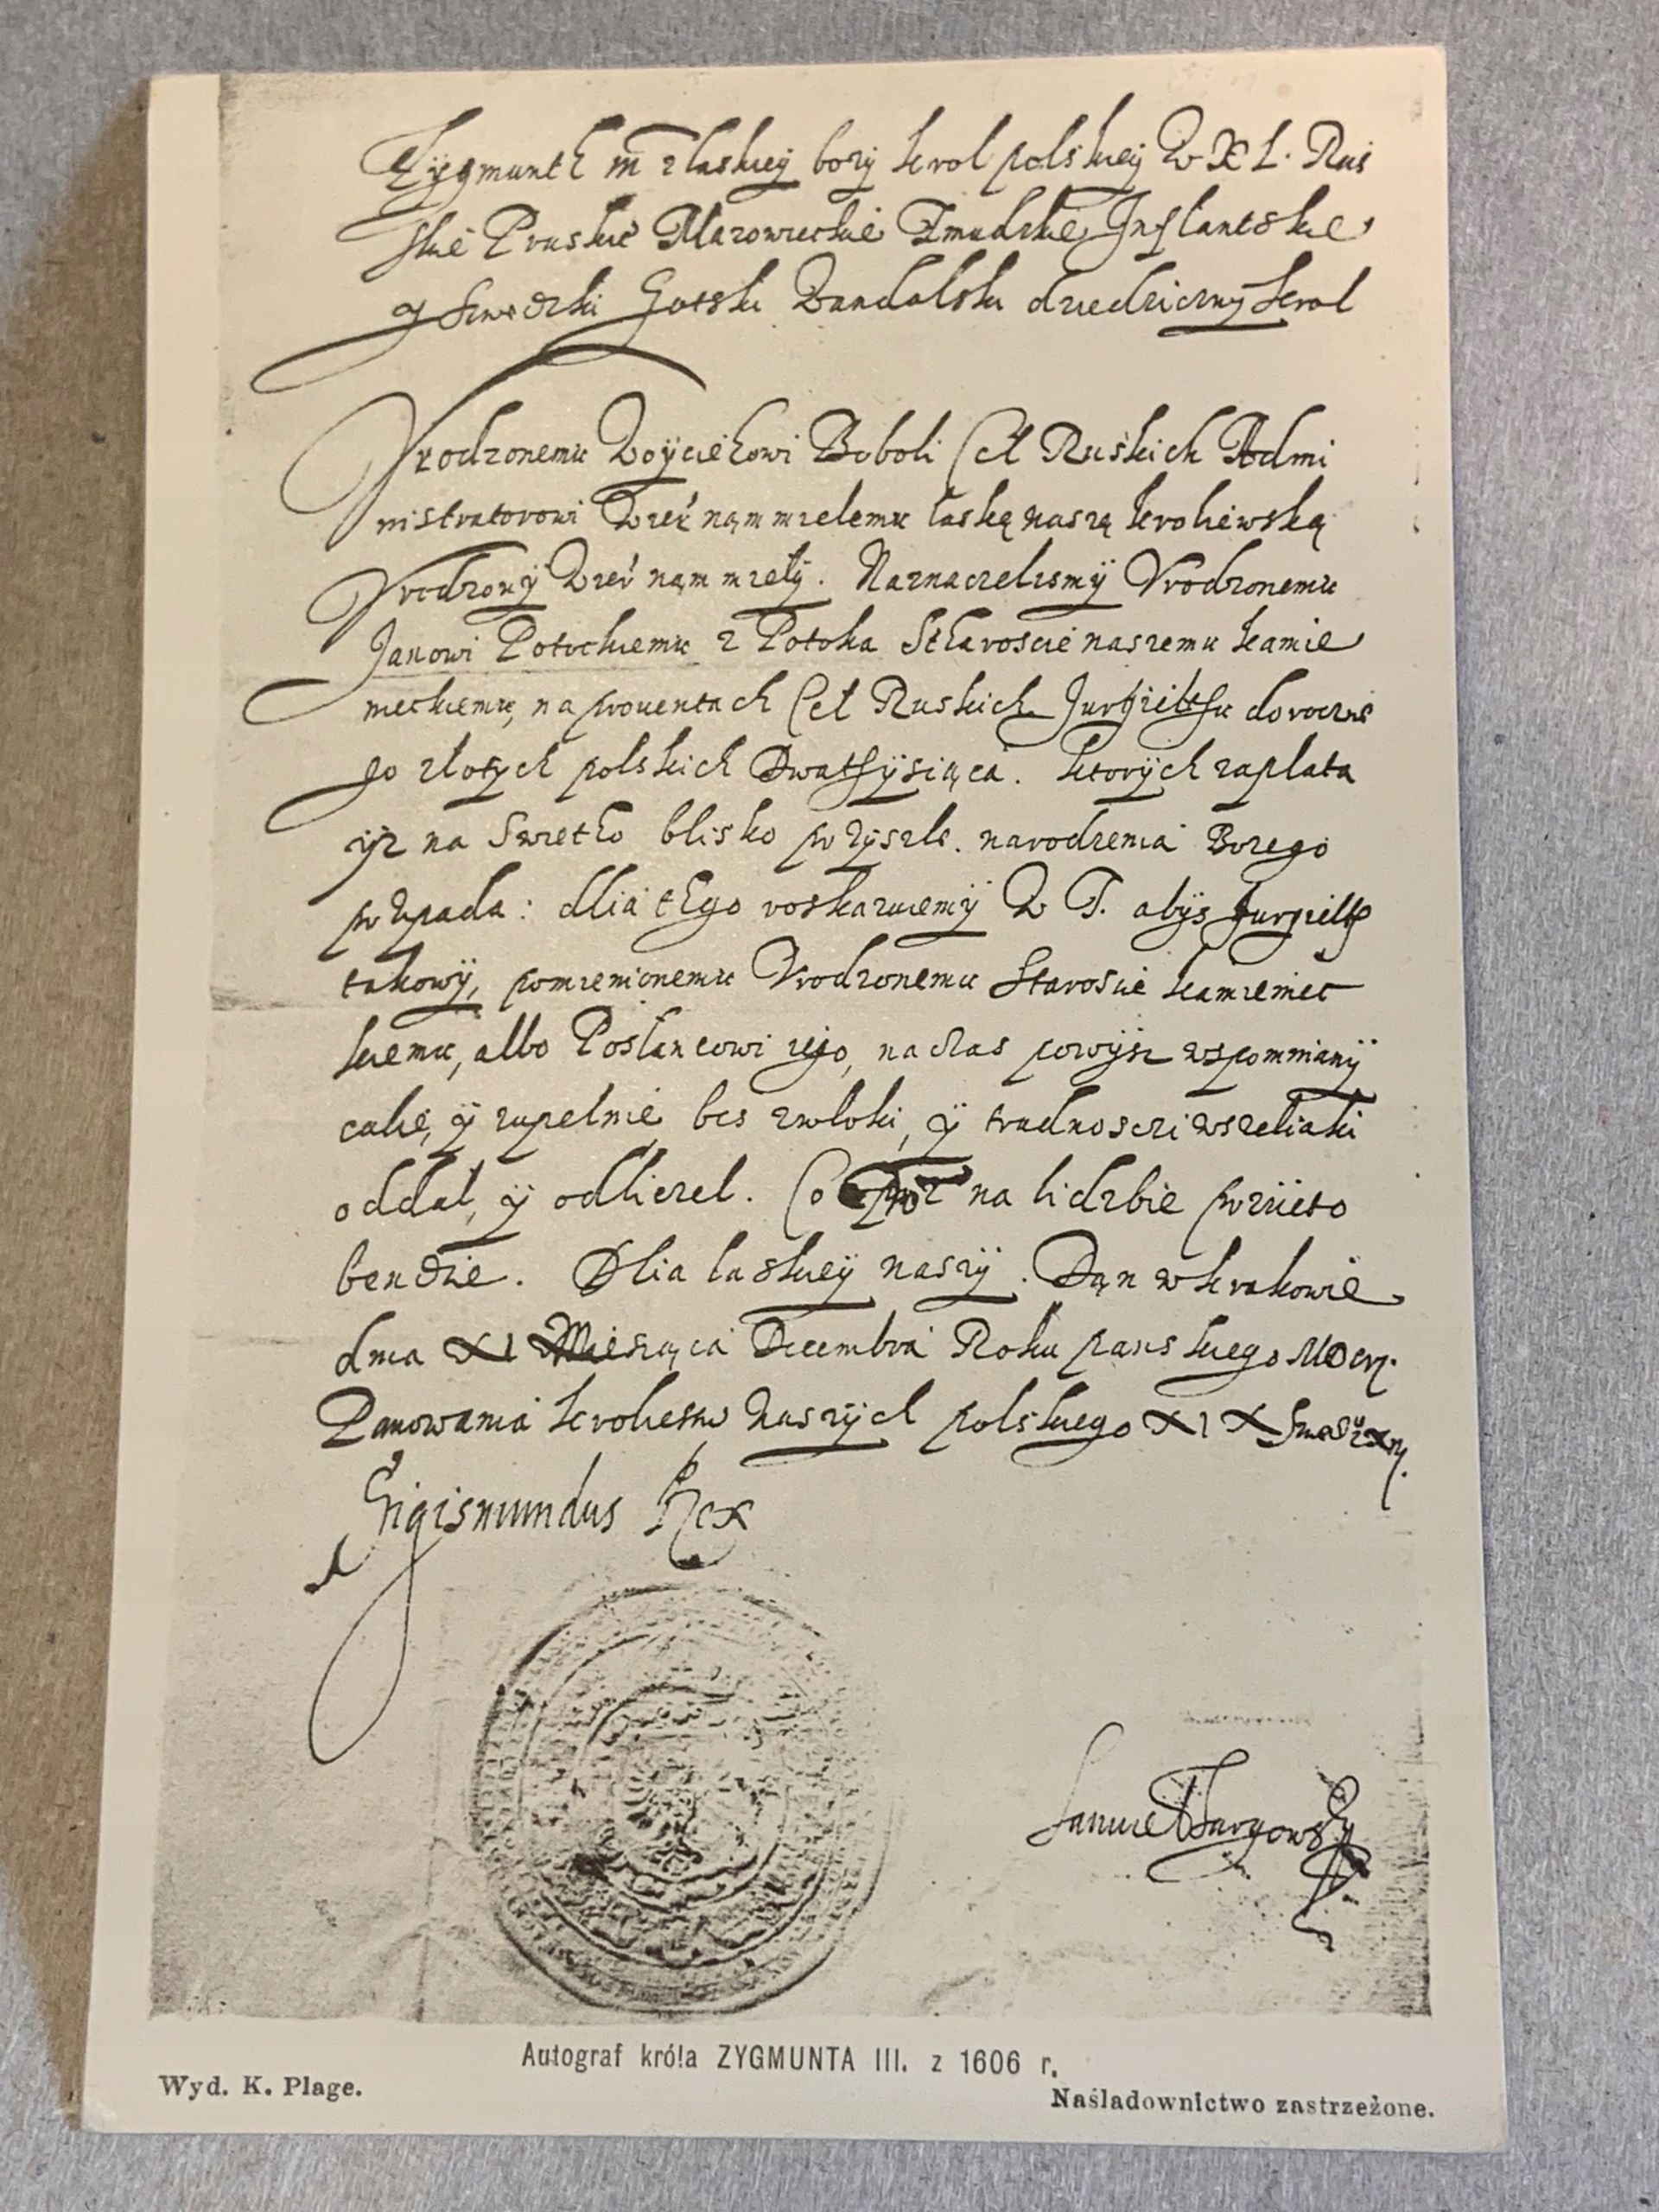 Zÿgmunth III z łaskieÿ bozÿ krol polskieÿ W X L. Rus
skie Pruskie Mazowieckie Zmudzkie Inflantskie,
y Szwedzki Gotski Wandalski dziedzicznÿ krol
Vrodzonemu Woÿciechowi Boboli Cel Ruskich Admi
nistratorowi Wier nąm miłemu łaskę naszą krolewską
Vrodzonÿ Wier nąm miełÿ. Naznaczelismÿ Vrodzonemu
Janowi Potockiemu z Potoka Stharoscie naszemu kamie
nieckiemu, na prouentach Cel Ruskich Jurgieltu doroczne
go złotych polskich Dwa tÿsiąca. ktorÿch zapłata
iż na Swietho blisko przÿszłe. narodzenia Bozego
przÿpada: dlia thego roskazuiemÿ W T. abÿs Jurgielt
takowÿ, pomienionemu Vrodzonemu Staroscie kamieniec
kiemu, albo Posłancowi iego, na czas powÿsz wspomnianÿ
całie, ÿ zupełnie bes zwłoki, ÿ trudnosczi wszeliaki
oddał, ÿ odliczel. Co na liczbie prziieto
bendzie. Dlia łaskieÿ naszÿ. Dąn w krakowie
dnia XI Miesiąca Decembra Roku panskiego MDCVI.
Panowania krolestw naszÿch polskiego XIX
Sigismundus Rex
Samuel Targowski
Autograf króla ZYGMUNTA III. z 1606 r.
Wyd. K. Plage.
Naśladownictwo zastrzeżone.